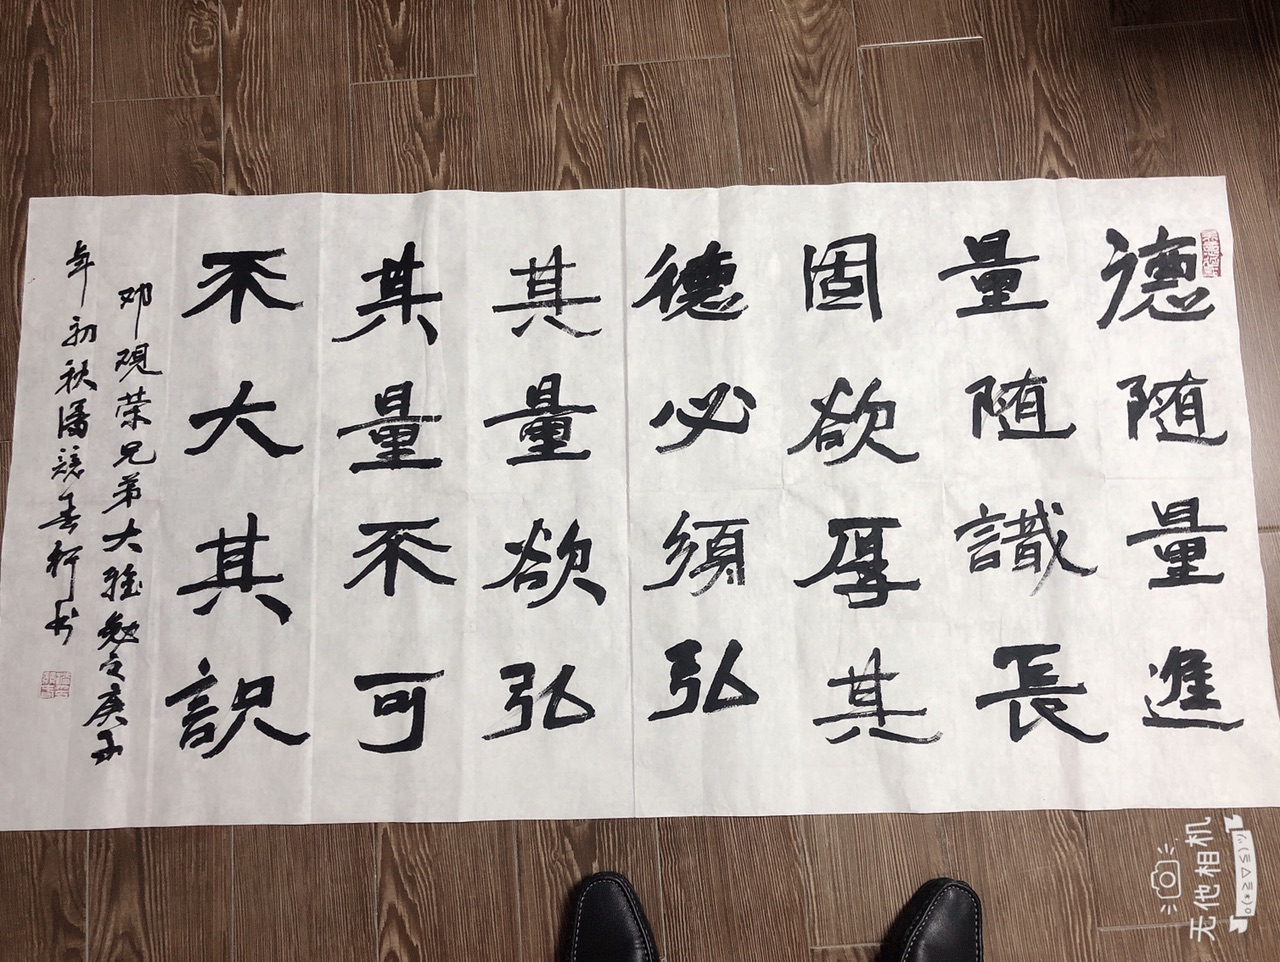 德随量進
量随識長
固欲厚其
德必須弘
其量欲弘
其量不可
不大其識
邓砚荣兄弟大雅勉之庚子
年初秋潘競春軒书
无他相机